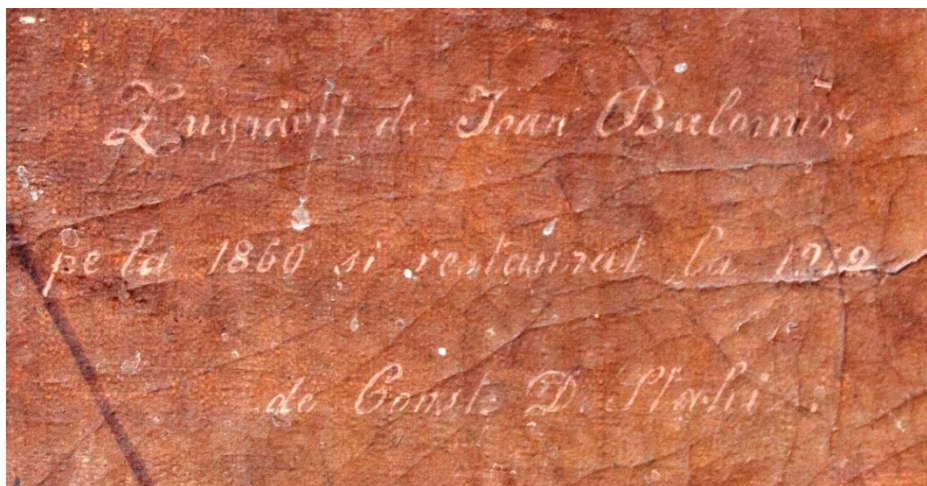 Zugrăvit de Ioan Balomir,
pe la 1860 si restaurat la 1912
de Const. D. Stahi.